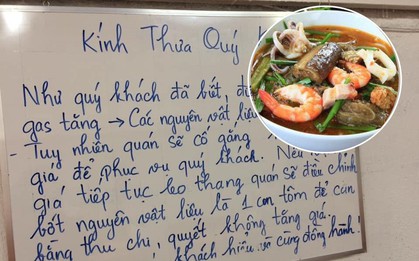 Kính Thưa Quý
Như quý khách đã biết,
gas tăng → Các nguyên vật liệu
- Tuy nhiên quán sẽ cố gắng
giá để phục vụ quý khách.
giá tiếp tục leo thang quán sẽ điều chỉnh
bớt nguyên vật liệu là 1 con tôm để cân
bằng thu chi, quyết không tăng giá
khách hiểu và cùng đồng hành!